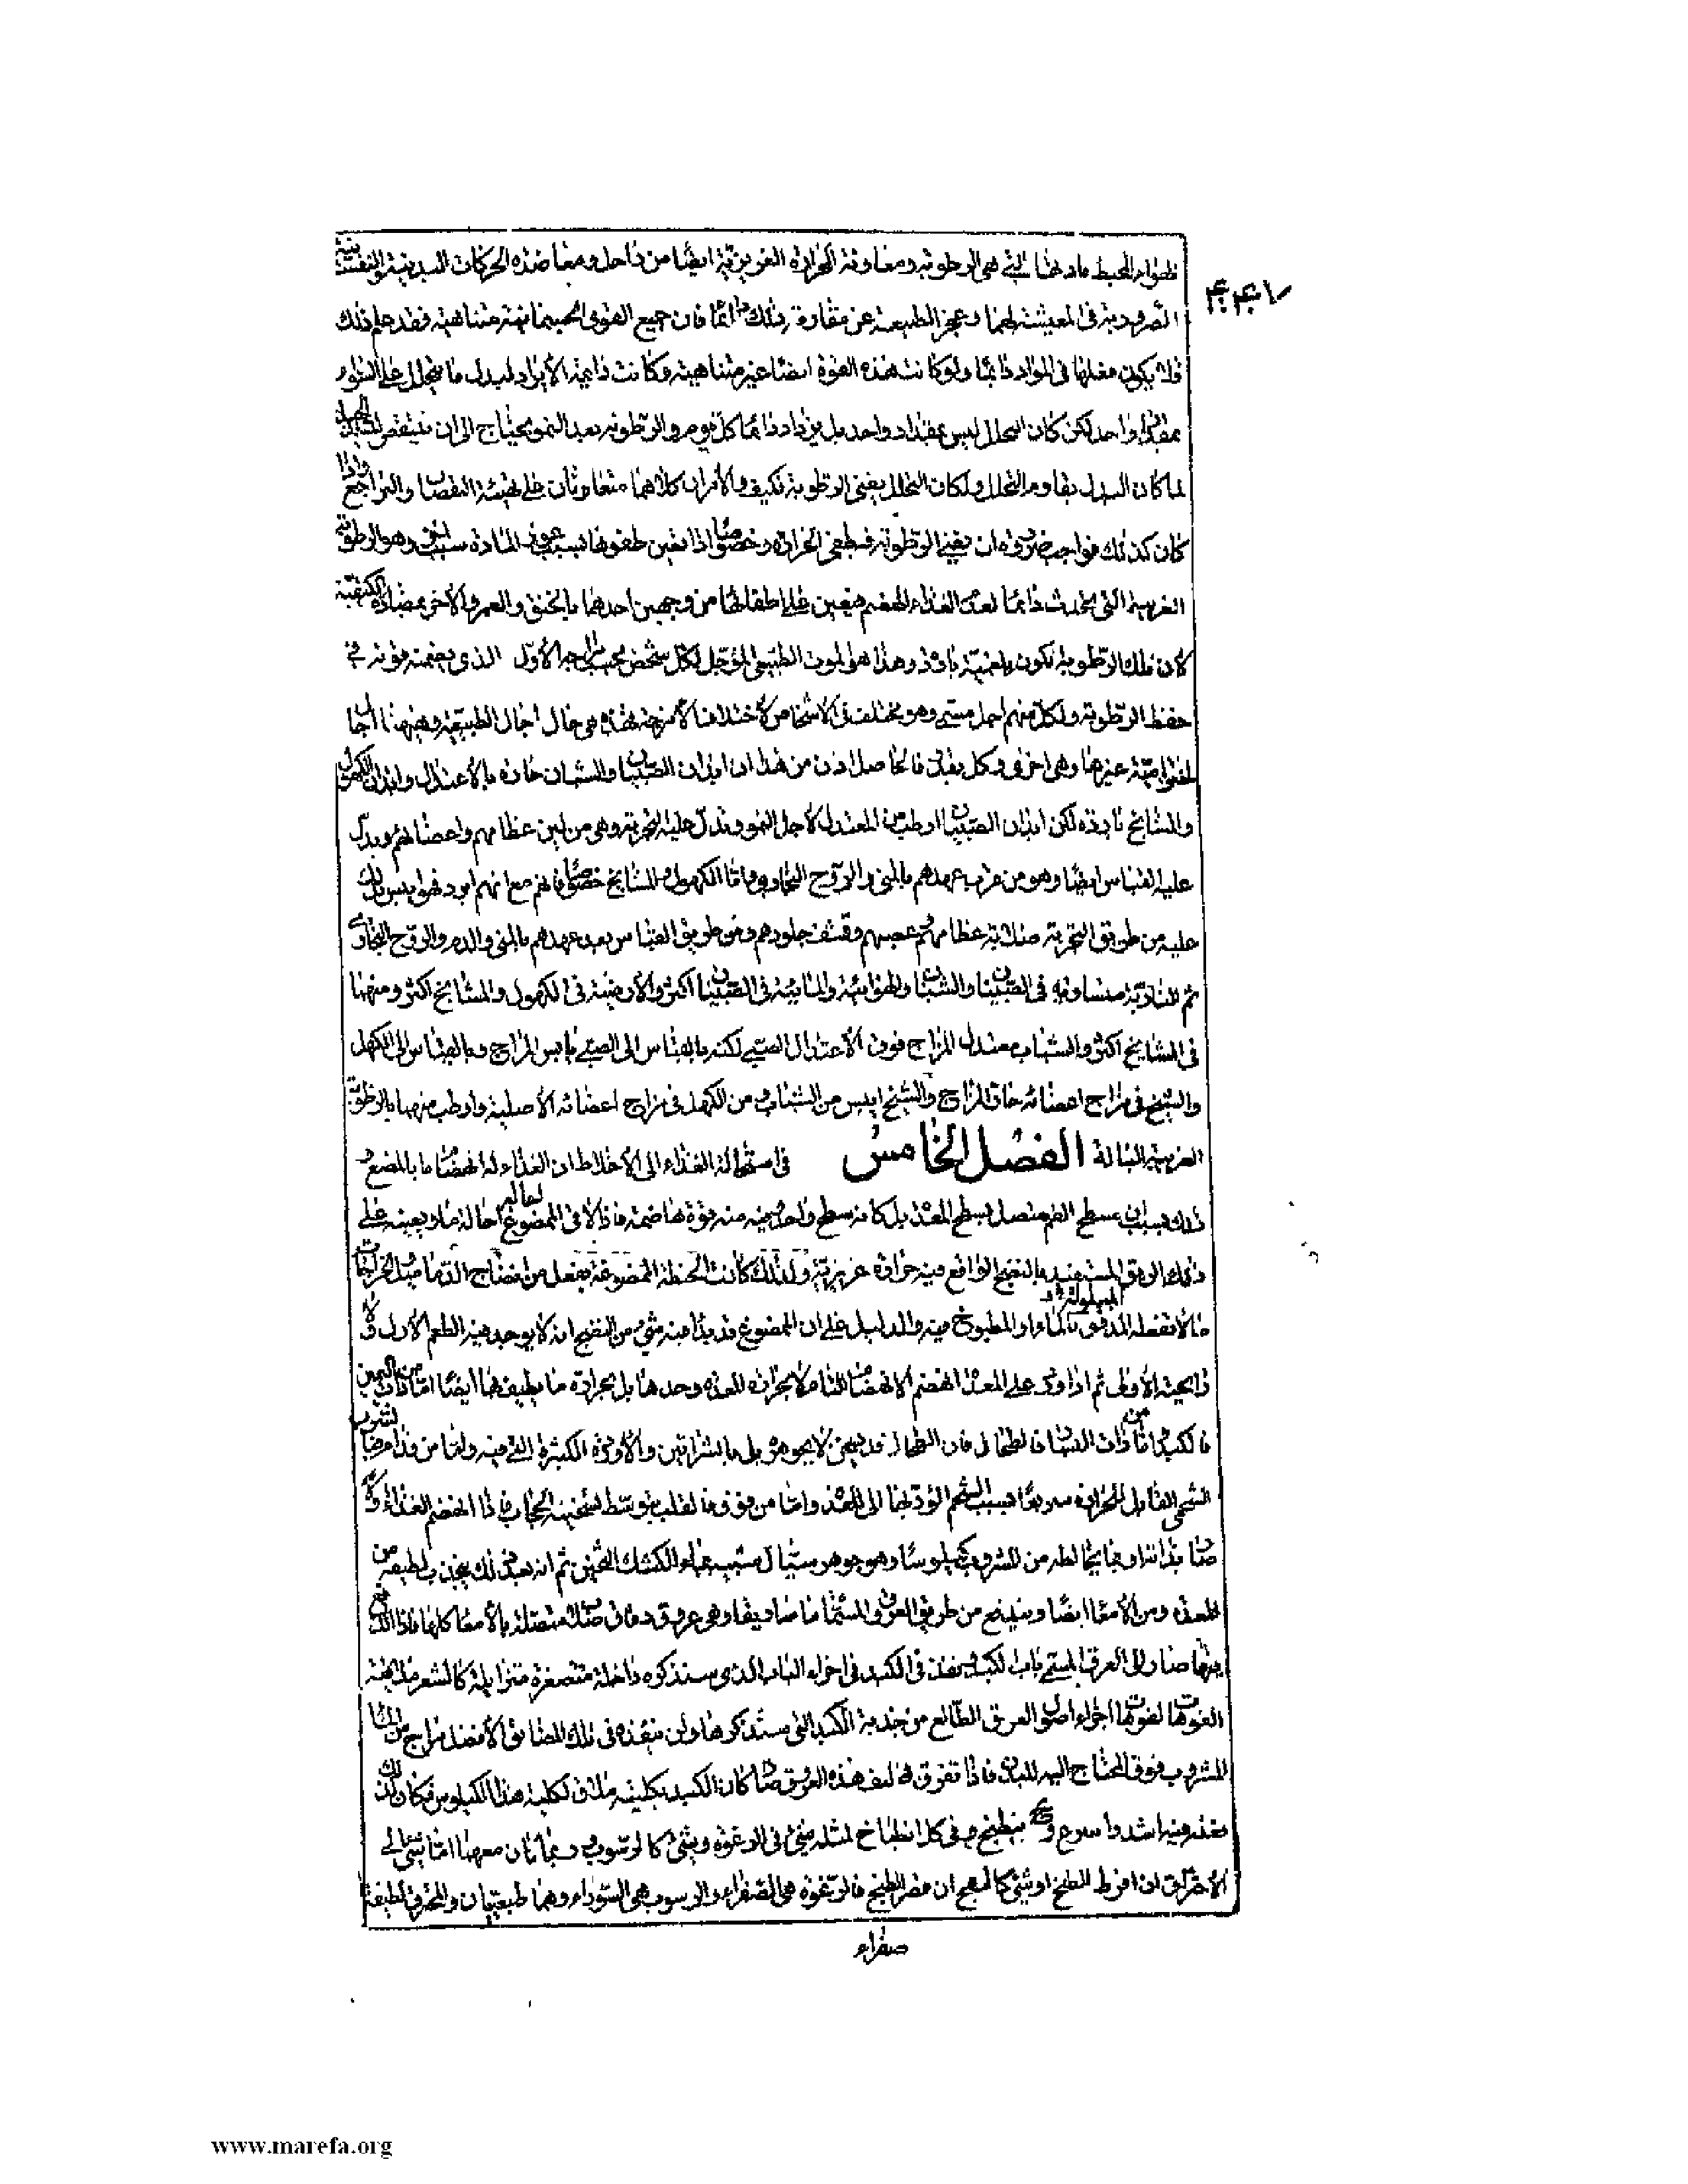 للهواء المحيط مادتها التي هى الرطوبة ومعاونة الحرارة الغريزية ايضا من داخل ومعاضدة الحركات البدنية والنفسانية
الضرورية فى المعيشة لهما وعجز الطبيعة عن مقاومة ذلك دائما فان جميع القوى الجسمانية متناهية فقد علم ذلك
فلا يكون فعلها فى المواد دائما ولو كانت هذه القوة ايضا غير متناهية وكانت دائمة الأيراد لبدل ما يتحلل على السواء
بمقدار واحد لكن كان التحلل ليس بمقدار واحد بل يزداد دائما كل يوم والرطوبة بعد النمو يحتاج الى ان ينتقص
لما كان البدل يقاوم التحلل ولكان التحلل يفنى الرطوبة فكيف والأمران كلاهما متعاونان على تهيئة النقصان والتراجع واذا
كان كذلك فواجب ضرورة ان يفنى الرطوبة فيطفى الحرارة وخصوصا اذا يعين طفوها بسبب عوز المادة سبب اخر وهو الرطوبة
الغريبة التى يحدث دائما لعدم الغذاء الهضم فيعين على اطفائها من وجهين احدهما بالخنق والغمر والأخر بمضادة الكيفية
لأن تلك الرطوبة تكون بلغمية باردة وهذا هو الموت الطبيعى المؤجل لكل شخص بحسب مزاجه الأول الذى يضمنه قوته فى
حفظ الرطوبة ولكل منهم اجل مسمى وهو مختلف فى الاشخاص لأختلاف الأمزجة فهذه هى حال اجال الطبيعية وهيهنا اجال
اخترامية غيرها وهى اخرى وكل بقدر فالحاصل اذن من هذا ان ابدان الصبيان والشبان حارة بالأعتدال وابدان الكهول
والمشايخ باردة لكن ابدان الصبيان ارطب من المعتدل لأجل النمو وتدل عليه التجربة وهى من لين عظامهم واعضائهم ويدل
عليه القياس ايضا وهو من قرب عهدهم بالمنى والروح البخارى واما الكهول والمشايخ خصوصا فانهم مع انهم ابرد فهم ايبس يدلك
عليه من طريق التجربة صلابة عظامهم وعصبهم وقشف جلودهم ومن طريق القياس بعد عهدهم بالمنى والدم والروح البخارى
ثم النارية متساوية فى الصبيان والشبان والهوائية والمائية فى الصبيان اكثر والأرضية فى الكهول والمشايخ اكثر ومنهما
فى المشايخ اكثر والشباب معتدل المزاج فوق الأعتدال الصبى لكنه بالقياس الى الصبى يابس المزاج وبالقياس الى الكهل
والشيخ فى مزاج اعضائه حار المزاج والشيخ ايبس من الشباب ومن الكهل فى مزاج اعضائه الأصلية وارطب منهما بالرطوبة
الغريبة البالة الفصل الخامس فى استحالة الغذاء الى الأخلاط ان الغذاء له انهضام ما بالمضغ و
ذلك بسبب ان سطح الفم متصل بسطح المعدة بل كانه سطح واحد وفيه منه قوة هاضمة فاذا لاقى الممضوغ احاله احالة ما ويعينه على
ذلك الريق المستفيد بالنضج الواقع فيه حرارة غريزية ولذلك كانت الحنطة الممضوغة يفعل من انضاج الدماميل والخراجات
ما لا يفعله المدقوق المبلولة بالماء او المطبوخ فيه والدليل على ان الممضوغ قد بدا فيه شئ من النضج انه لا يوجد فيه الطعم الأول ولا
رايحته الأولى ثم اذا ورد على المعدة انهضم الانهضام التام لا بحرارة المعدة وحدها بل بحرارة ما يطيف بها ايضا اما ذات اليمين
فالكبد واما ذات اليسار فالطحال فان الطحال قد يسخن لا بجوهره بل بالشرائين والأوردة الكثيرة التى فيه واما من قدام فبالثرب
الشحمى القابل للحرارة سريعا بسبب الشحم المؤديها الى المعدة واما من فوق فالقلب بتوسط تسخينه الحجاب فاذا انهضم الغذاء اولا
صار بذاته او بما يخالطه من المشروب كيلوسا وهو جوهر سيال شبيه بماء الكشك الثخين ثم انه بعد ذلك ينجذب لطيفه من
المعدة ومن الأمعاء ايضا ويندفع من طريق العروق المسماة ماساريقا وهى عروق دقاق صلاب متصلة بالأمعاء كلها فاذا اندفع
فيها صار الى العرق المسمى باب الكبد ونفذ فى الكبد فى اجزاء الباب الذى سنذكره داخلة متصغرة متزايلة كالشعر ملاقية
الفوهات لفوهات اجزاء اصول العرق الطالع من حدبة الكبد التى سنذكرها ولن ينفذه فى تلك المضائق الا فضل مزاج من الماء
المشروب فوق المحتاج اليه للبدن فاذا تفرق فى ليف هذه العروق صار كان الكبد بكليته ملاق لكلية هذا الكيلوس فكان لذلك
فعله فيه اشد واسرع وح ينطبخ وفى كل انطباخ لمثله شئ فى الرغوة وشئ كالرسوب وربما كان معهما اما شئ الى
الاحتراق ان افرط الطبخ او شئ كالفج ان قصر الطبخ فالرغوة هى الصفراء والرسوب هى السوداء وهما طبيعيان والمحترق لطيفه
صفراء
www.marefa.org